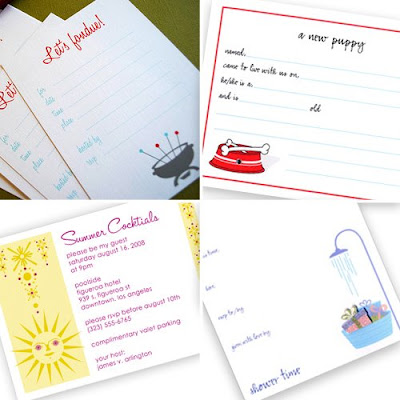 Let's fondue!
for
date
time
place
hosted by
rsvp
Let'
a new puppy
named,
came to live with us on,
he/she is a,
and is old
Summer Cocktials
please be my guest
saturday august 16, 2008
at 9pm
poolside
figueroa hotel
939 s. figueroa st
downtown, los angeles
please rsvp before august 10th
(323) 555-6765
complimentary valet parking
your host:
james v. arlington
rsvp to/by
given with love by
shower time